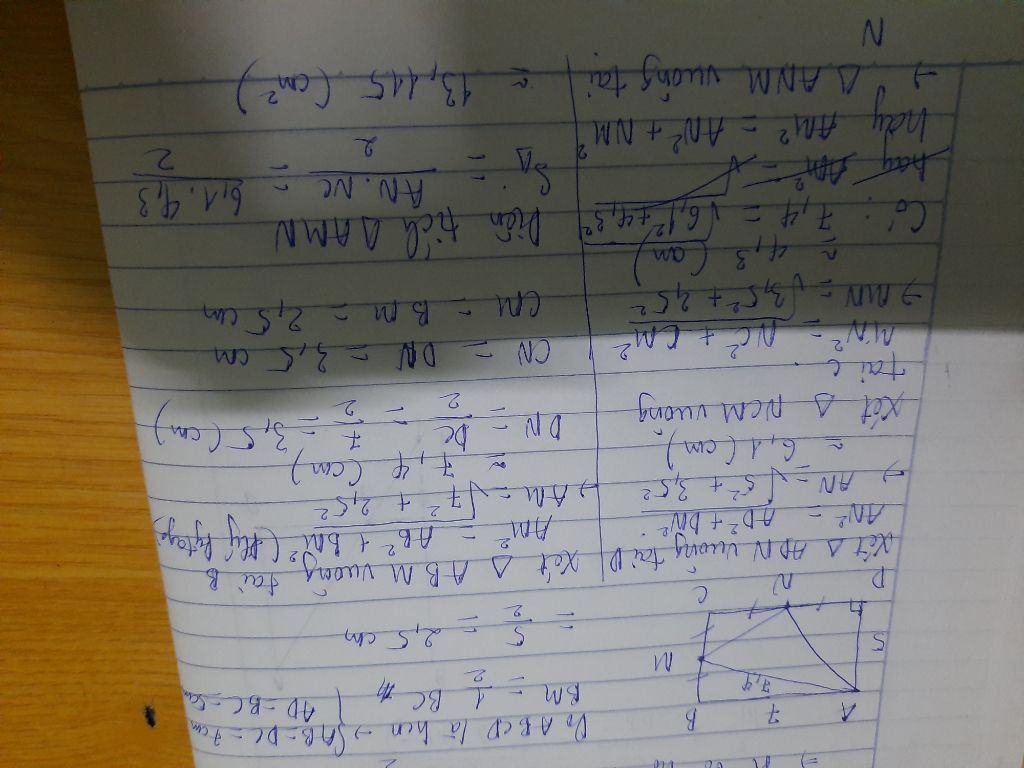 A 7 B
7,4
5
M
D N C
Do ABCD là hcn → { AB = DC = 7cm
AD = BC = 5cm
BM = 1/2 BC
= 5/2 = 2,5 cm
Xét Δ ABM vuông tại B
AM² = AB² + BM² (
→ AM = √7² + 2,5²
≈ 7,4 (cm)
DN = DC/2 = 7/2 = 3,5 (cm)
CN = DN = 3,5 cm
CM = BM = 2,5 cm
Diện tích Δ AMN
S_Δ = AN.NC/2 = 6,1.4,3/2
≈ 13,115 (cm²)
Xét Δ ADN vuông tại D
AN² = AD² + DN²
→ AN = √5² + 3,5²
≈ 6,1 (cm)
Xét Δ NCM vuông
tại C
MN² = NC² + CM²
→ MN = √3,5² + 2,5²
≈ 4,3 (cm)
Có: 7,4 = √6,1² + 4,3²
hay AM² =
hay AM² = AN² + NM²
→ Δ ANM vuông tại
N